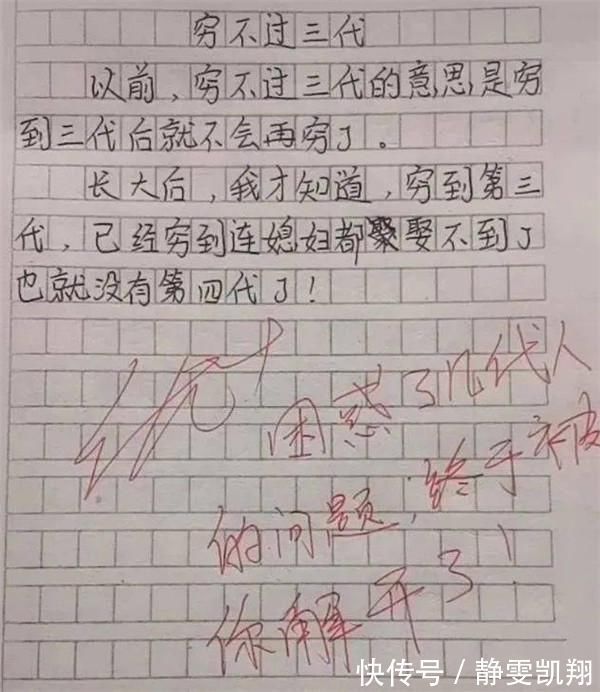 穷不过三代
以前，穷不过三代的意思是穷
到三代后就不会再穷了。
长大后，我才知道，穷到第三
代，已经穷到连媳妇都聚娶不到了
也就没有第四代了！
优+
困惑了几代人
的问题，终于被
你解开了！
快传号/静雯凯翔